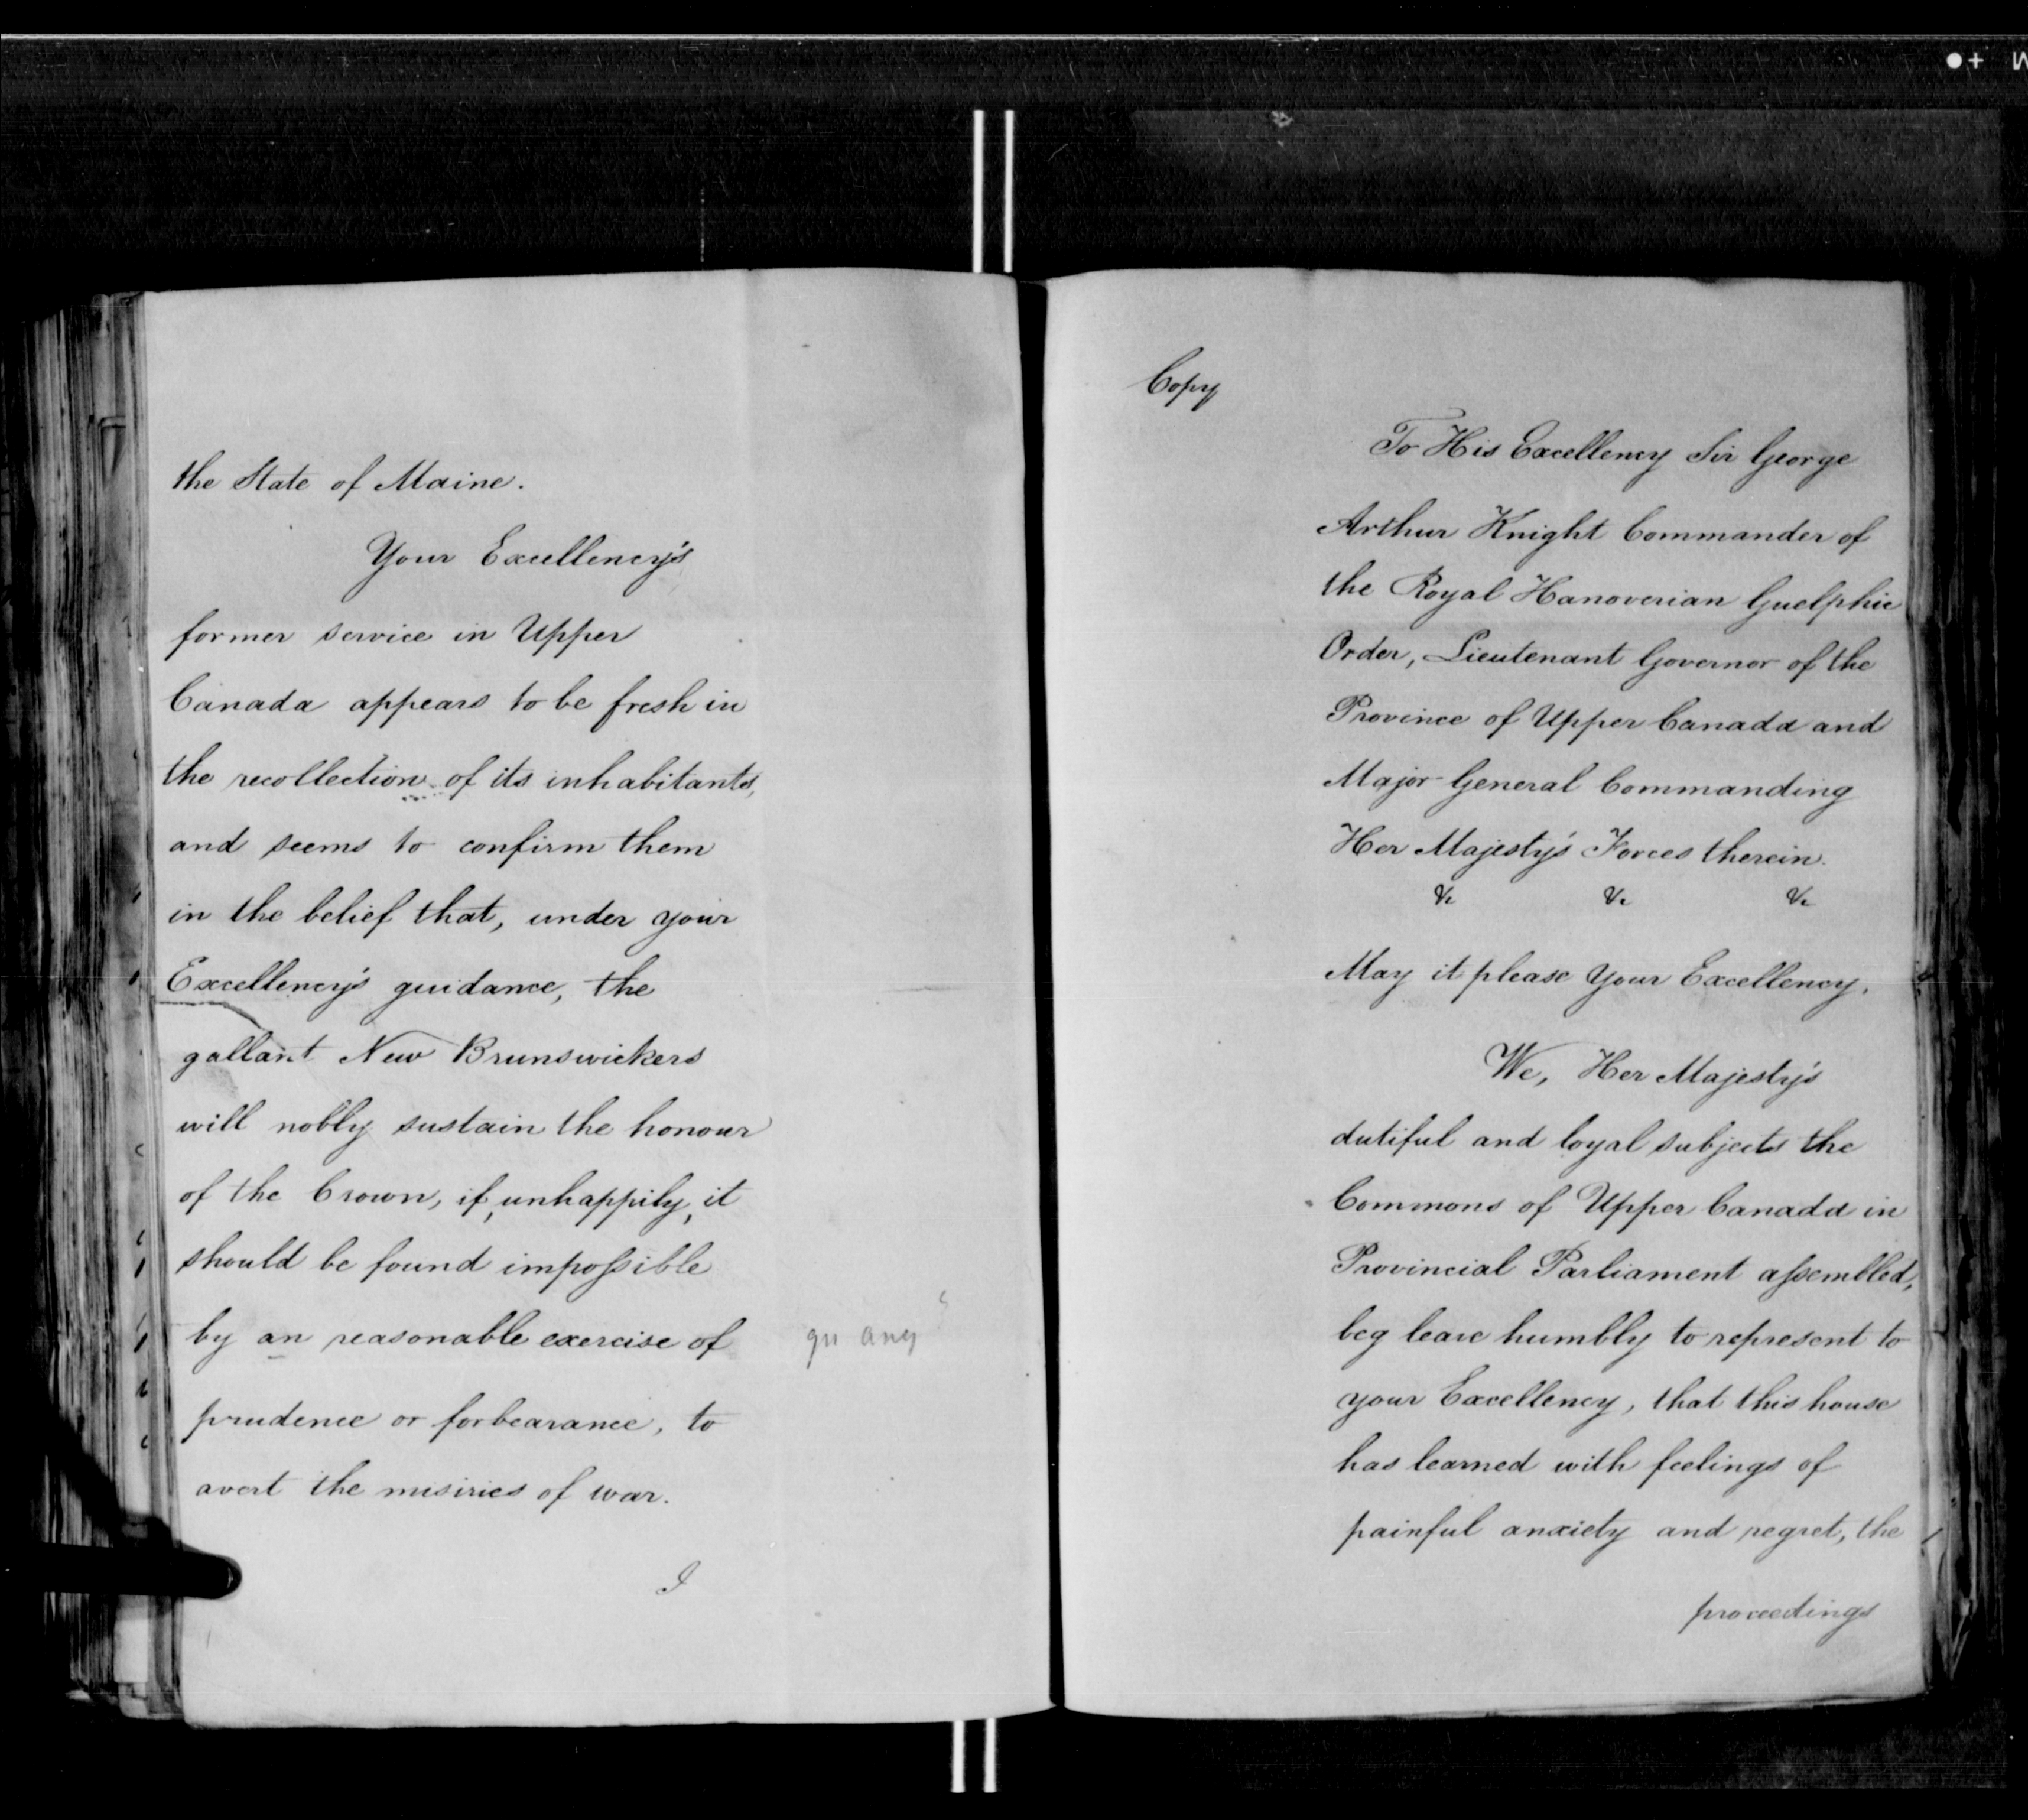 the State of Maine.
Your Excellency's
former service in Upper
Canada appears to be fresh in
the recollection of its inhabitants,
and seems to confirm them
in the belief that, under your
Excellency's guidance, the
gallant New Brunswickers
will nobly sustain the honour
of the Crown, if, unhappily, it
should be found impossible
by an reasonable exercise of
qu any
prudence or forbearance, to
avert the misiries of war.
I
Copy
To His Excellency Sir George
Arthur Knight Commander of
the Royal Hanoverian Guelphic
Order, Lieutenant Governor of the
Province of Upper Canada and
Major-General Commanding
Her Majesty's Forces therein.
&c &c &c
May it please Your Excellency,
We, Her Majesty's
dutiful and loyal subjects the
Commons of Upper Canada in
Provincial Parliament assembled,
beg leave humbly to represent to
your Excellency, that this house
has learned with feelings of
painful anxiety and regret, the
proceedings